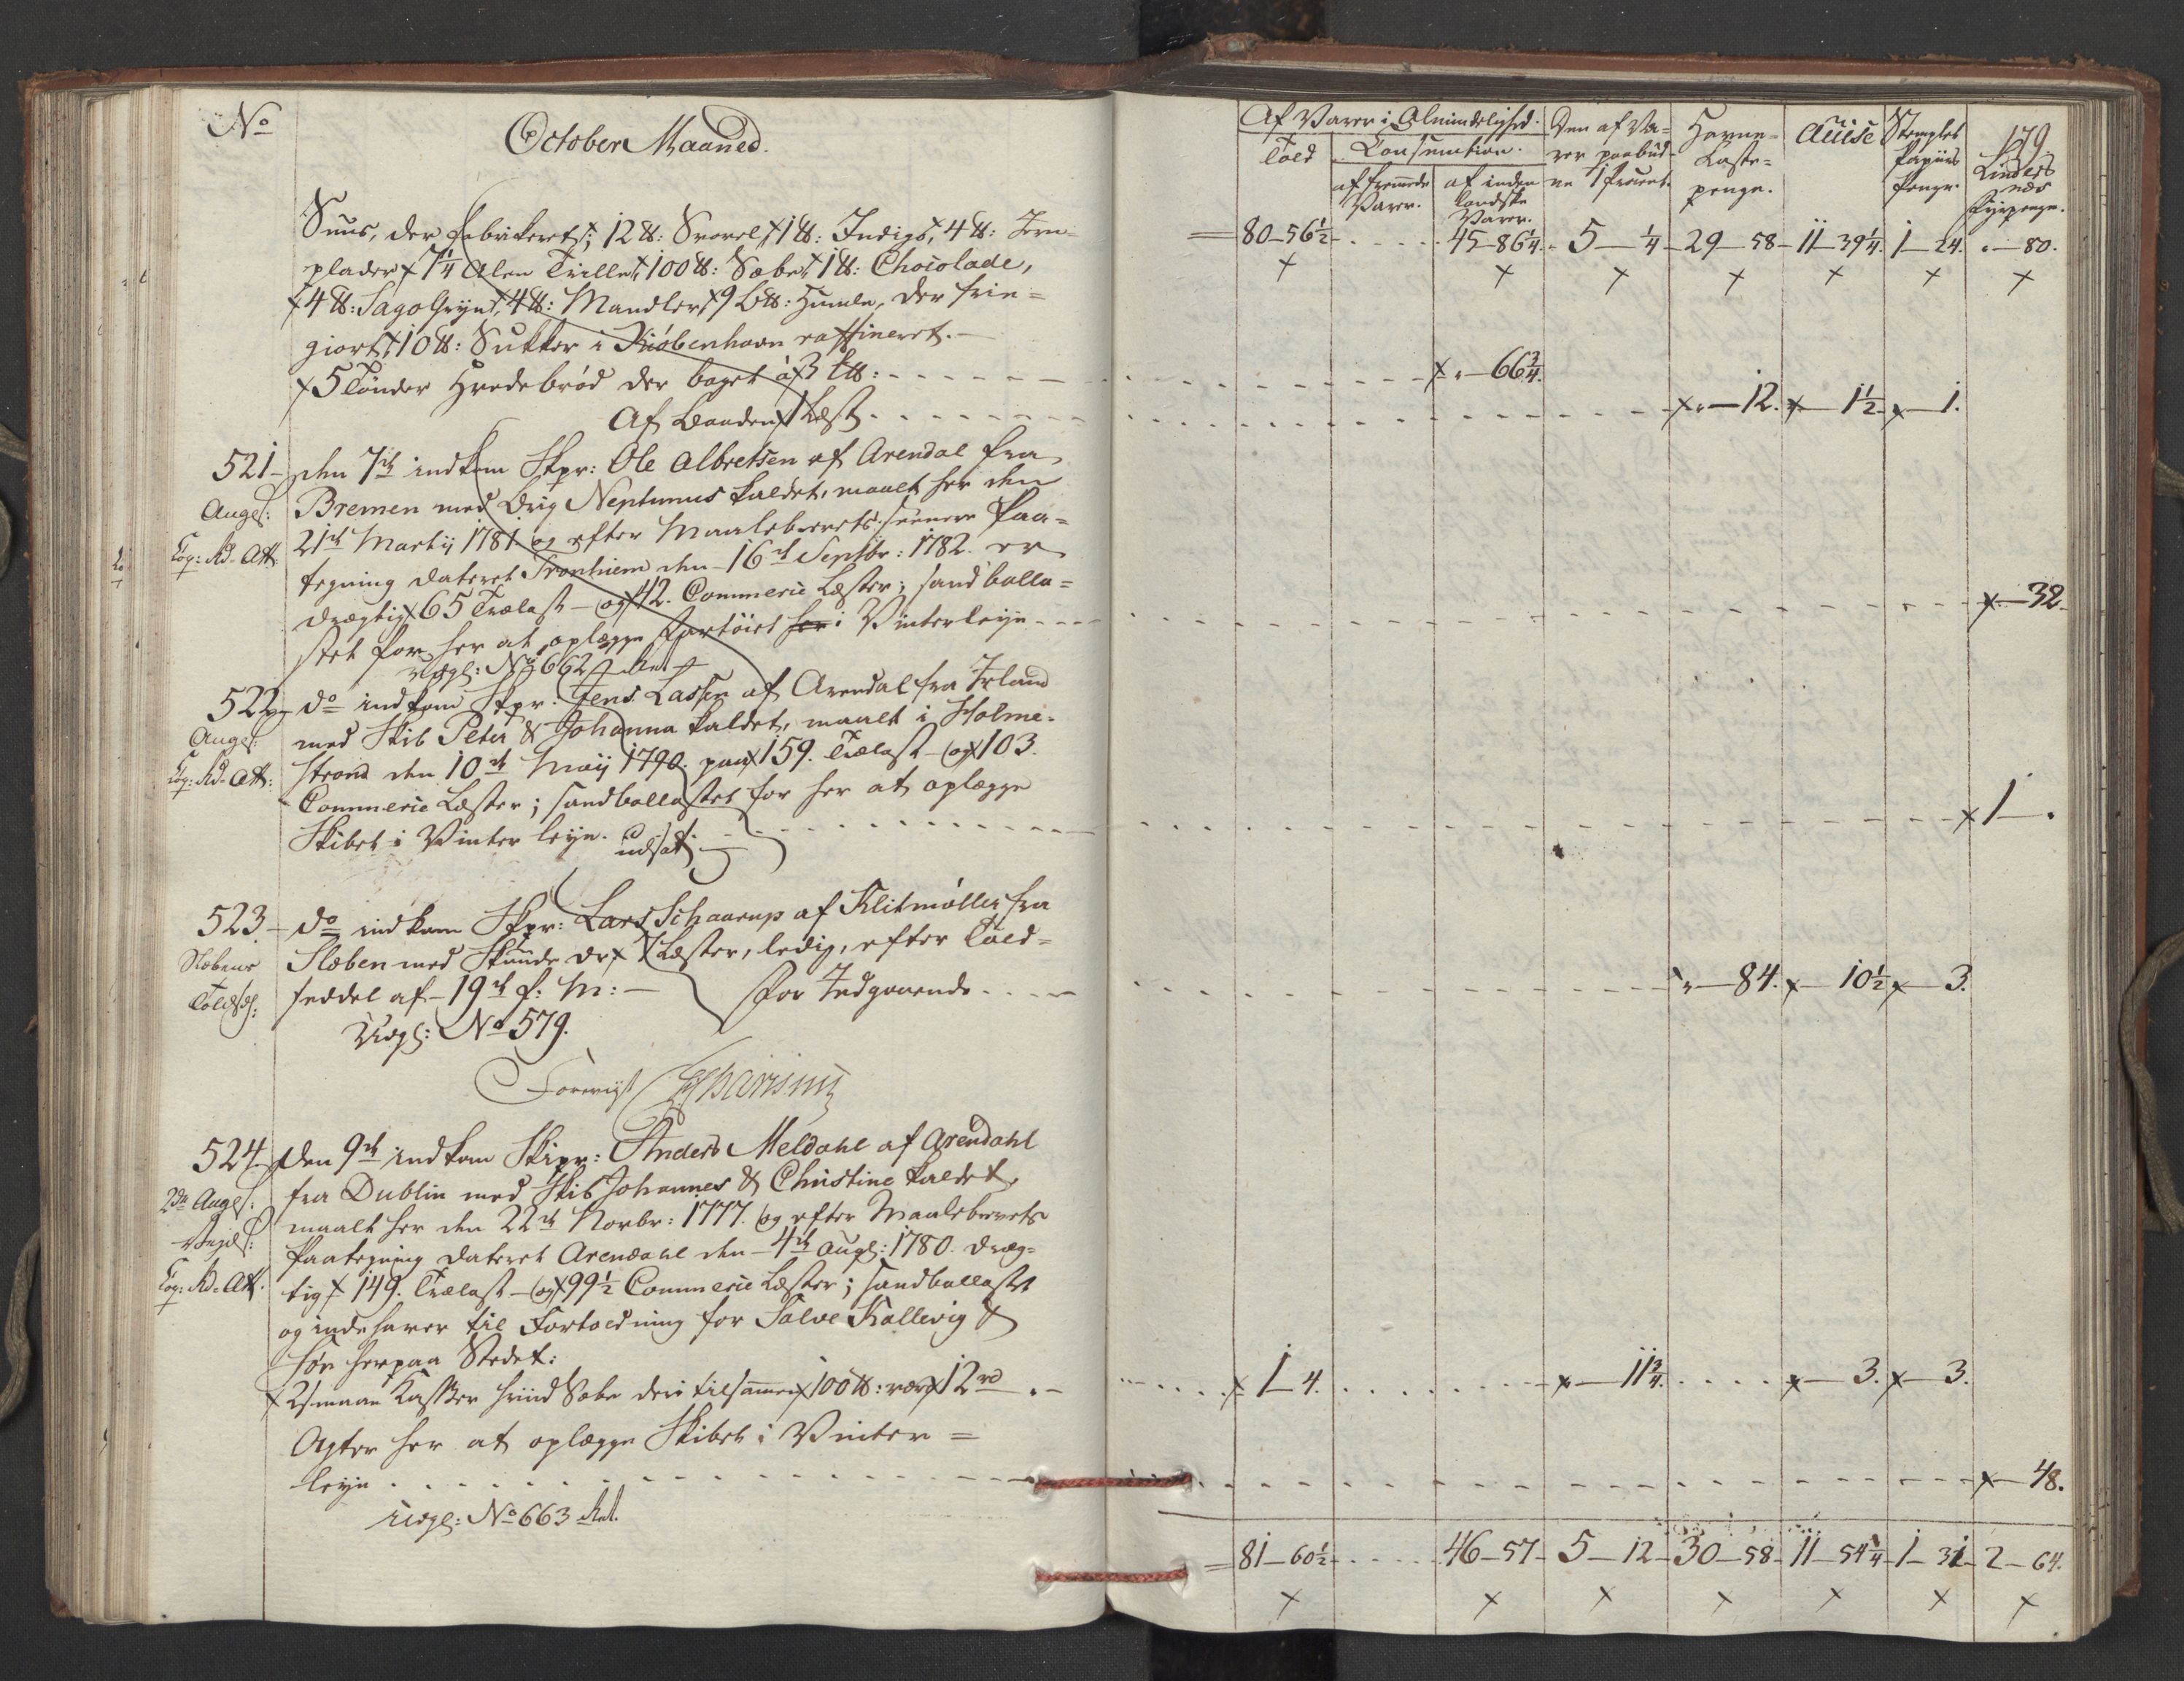 No
October Maaned.
Snus, der fabrikeret; 12 ℔: Svovel, 1 ℔: Indigo, 4 ℔: Jern=
plader, 7 1/4 Alen Trille, 100 ℔: Sæbe, 1 ℔: Chocolade,
4 ℔: Sago Gryn, 4 ℔: Mandler, 9 L℔: Humle, der frie=
giort, 10 ℔: Sukker i Kiøbenhavn raffineret.
5 Tønder Hvedebrød der baget af 3 t℔:
Af Baaden 1 Læst
521 - den 7de indkom Skpr: Ole Albretsen af Arendal fra
Angl:
Bremen med Brig Neptunus kaldet, maalt her den
Toy: Rd. Att:
21de Martij 1781. og efter Maalebrevets seenere Paa=
tegning dateret Tronhiem den 16de Septbr: 1782. er
drægtig 65 Trælast - og 42. Commerce Læster; sandballa=
stet for her at oplægge Fartøiet her i Vinterleije
Udgl: No 662
522 - do indkom Skpr: Jens Lassen af Arendal fra Irland
Angl:
med Skib Peter & Johanna kaldet, maalt i Holme-
Toy: Rd. Att:
strand den 10de Maij 1790. paa 159. Trælast - og 103.
Commerce Læster; sandballastet for her at oplægge
Skibet i Vinter leije. udsat
523 - do indkom Skpr: Lars Schaarup af Klitmøller fra
Slæbens
Slæben med Skuude dr. 7 Læster, ledig, efter Told=
Toldsdl:
seddel af 19de f: M: - For Indgaaende
Udgl: No 579.
Foreviist
524 - Den 9de indkom Skipr: Anders Meldahl af Arendahl
2de Angl:
fra Dublin med Skib Johannes & Christine kaldet,
maalt her den 22de Novbr: 1777. og efter Maalebrevets
Paategning dateret Arendahl den 4de Aug: 1780. dræg=
Toy: Rd. Att:
tig 149. Trælast - og 99 1/2 Commerce Læster; sandballastet
og indehaver til Fortoldning for Salve Kallevig &
Søn herpaa Stedet:
2 smaae Kasser hviid Sæbe deri tilsammen 100 ℔: værd 12 rd
Agter her at oplægge Skibet i Vinter=
leije
Udgl: No 663
Af Varer i Almindelighed.
Told
Consumtion.
af fremmede Varer.
af inden landske Varer.
Den af Va=
rer paabud=
ne 1 Procent.
Havne=
Kaste=
penge.
Accise
Stemplet
Papiirs
Penge.
179.
Lindes
næs
Fyrpenge.
80-56 1/2 45-86 1/4 5-1/4 29-58 11-39 1/4 1-24. "-80.
"-66 3/4
"-12. 1 1/2 1.
32.
1-"
"-84. 10 1/2 3.
1-4. 11 3/4 3. 3.
48.
81-60 1/2 46-57 5-12 30-58 11-54 1/4 1-31 2-64.